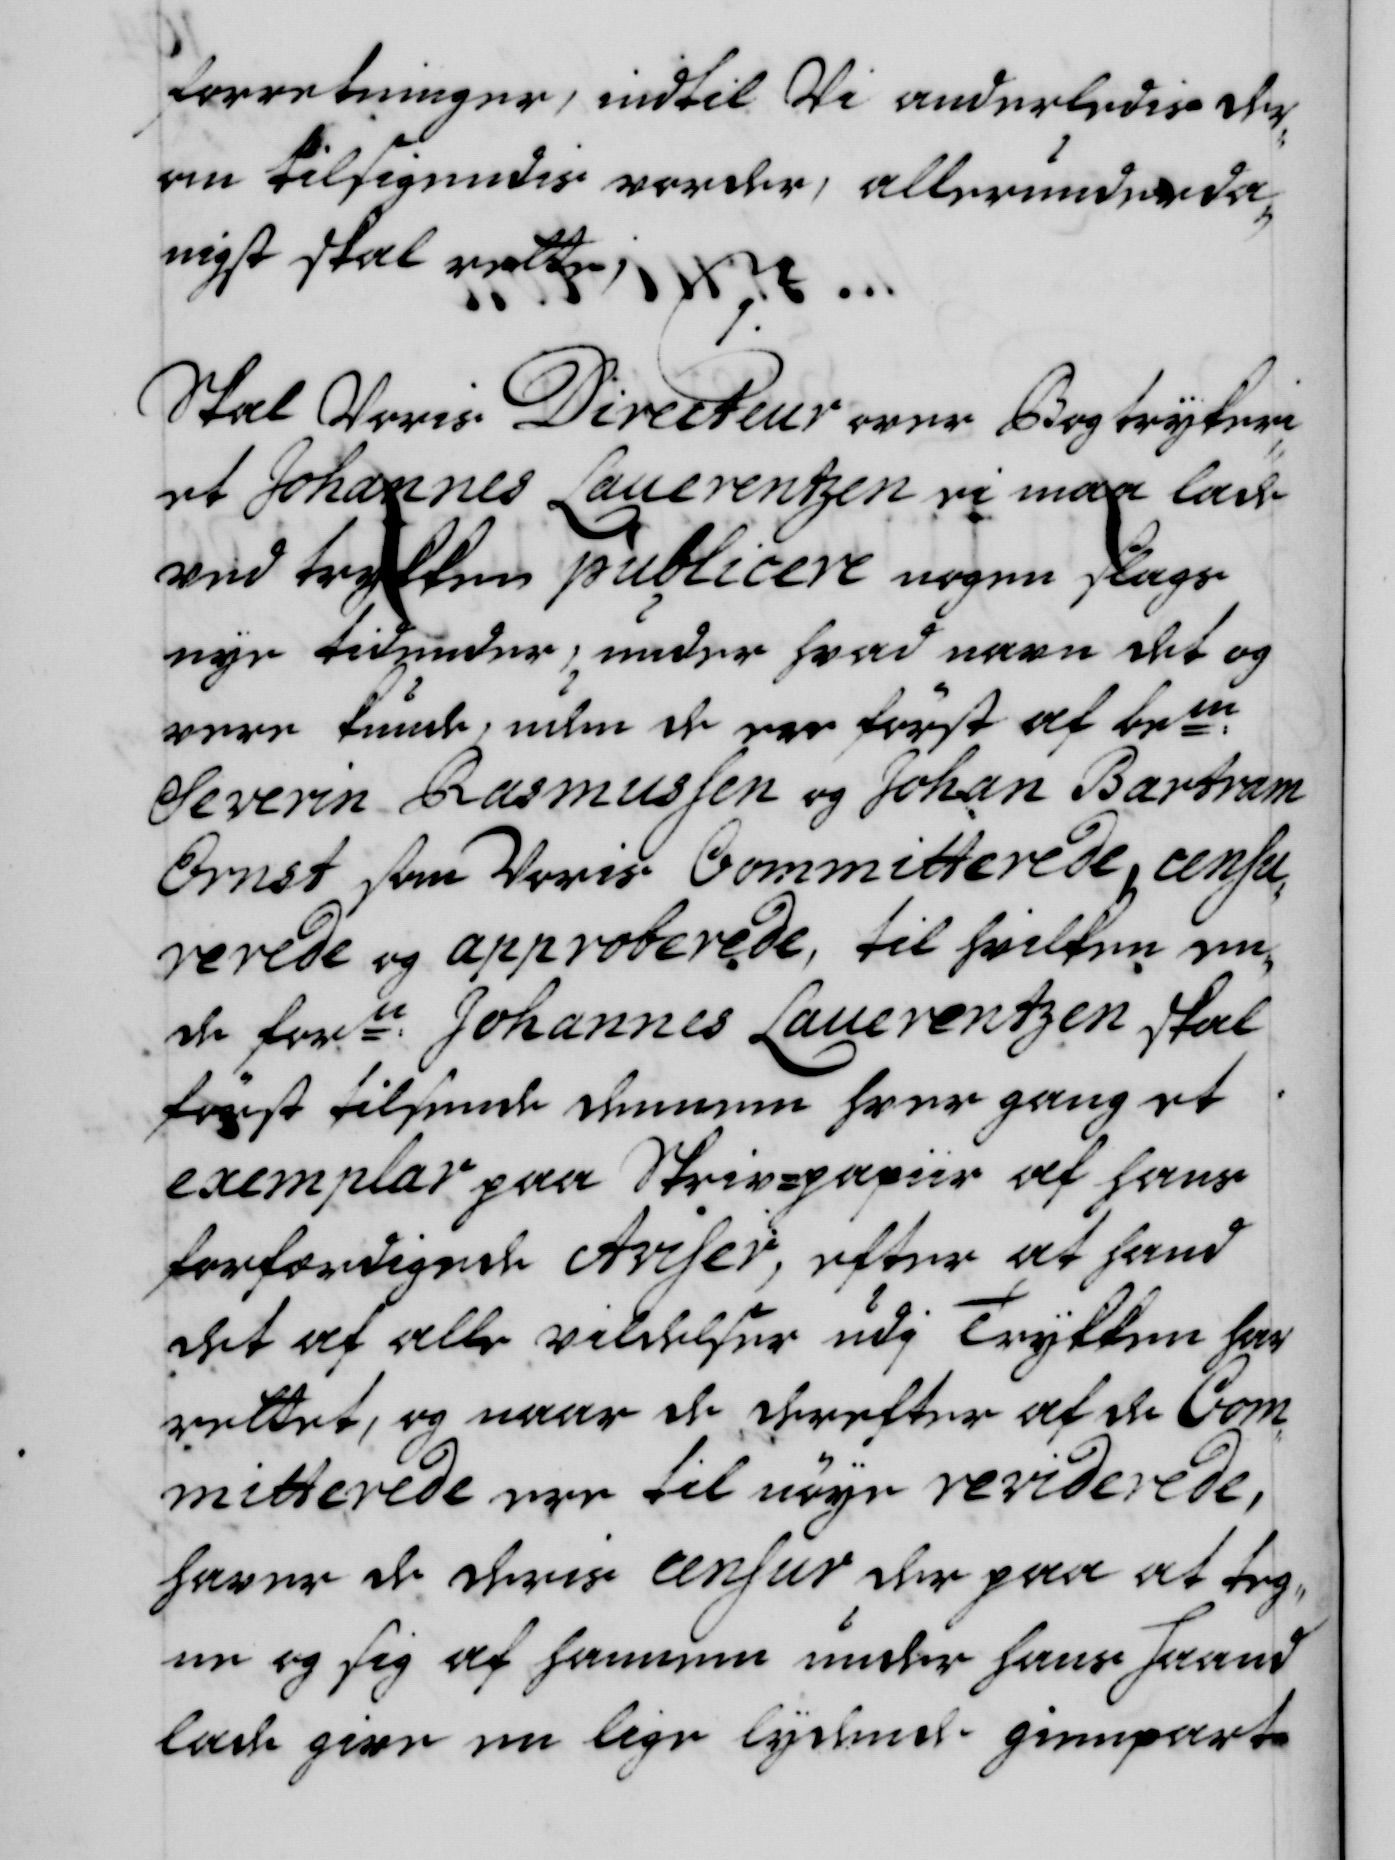 forretninger, indtil Vi anderledis der,,
om tilsigendis vorder, allerunderda,,
nigst skal rette,
1.
Skal Voris Directeur over Bogtrykeri,,
et Johannes Lauerentzen ei maa lade
ved trykken publicere nogen slags
nye tidender, under hvad navn det og
vere kunde, uden de ere först af bem.te
Severin Rasmussen og Johan Bartram
Ernst som Voris Committerede, censu,,
rerede og approberede, til hvilken en,,
de forn: Johannes Lauerentzen skal
först tilsende dennem hver gang et
exemplar paa Skriv=papiir af hans
forfærdigede Aviser, efter at hand
det af alle vildelser udj Trykken har
rettet, og naar de derefter af de Com,,
mitterede ere til nöye reviderede,
haver de deris censur der paa at teg,,
ne og sig af hannem under hans Haand
lade give en lige lydende gienpart